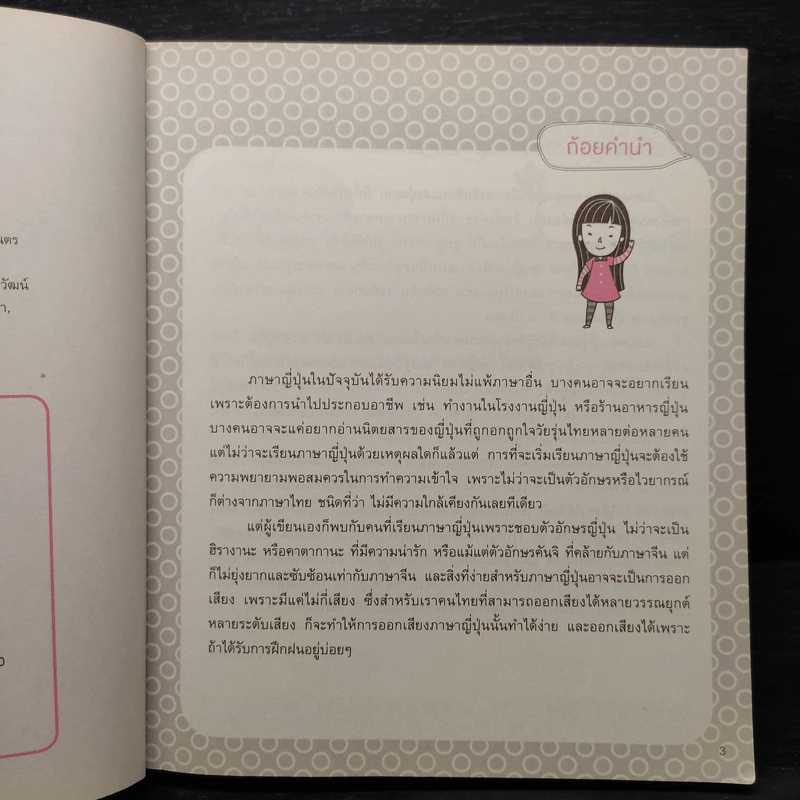 นตร
วัฒน์
า,
0
ถ้อยคำนำ
ภาษาญี่ปุ่นในปัจจุบันได้รับความนิยมไม่แพ้ภาษาอื่น บางคนอาจจะอยากเรียน
เพราะต้องการนำไปประกอบอาชีพ เช่น ทำงานในโรงงานญี่ปุ่น หรือร้านอาหารญี่ปุ่น
บางคนอาจจะแค่อยากอ่านนิตยสารของญี่ปุ่นที่ถูกอกถูกใจวัยรุ่นไทยหลายต่อหลายคน
แต่ไม่ว่าจะเรียนภาษาญี่ปุ่นด้วยเหตุผลใดก็แล้วแต่ การที่จะเริ่มเรียนภาษาญี่ปุ่นจะต้องใช้
ความพยายามพอสมควรในการทำความเข้าใจ เพราะไม่ว่าจะเป็นตัวอักษรหรือไวยากรณ์
ก็ต่างจากภาษาไทย ชนิดที่ว่า ไม่มีความใกล้เคียงกันเลยทีเดียว
แต่ผู้เขียนเองก็พบกับคนที่เรียนภาษาญี่ปุ่นเพราะชอบตัวอักษรญี่ปุ่น ไม่ว่าจะเป็น
ฮิรางานะ หรือคาตากานะ ที่มีความน่ารัก หรือแม้แต่ตัวอักษรคันจิ ที่คล้ายกับภาษาจีน แต่
ก็ไม่ยุ่งยากและซับซ้อนเท่ากับภาษาจีน และสิ่งที่ง่ายสำหรับภาษาญี่ปุ่นอาจจะเป็นการออก
เสียง เพราะมีแค่ไม่กี่เสียง ซึ่งสำหรับเราคนไทยที่สามารถออกเสียงได้หลายวรรณยุกต์
หลายระดับเสียง ก็จะทำให้การออกเสียงภาษาญี่ปุ่นนั้นทำได้ง่าย และออกเสียงได้เพราะ
ถ้าได้รับการฝึกฝนอยู่บ่อยๆ
3